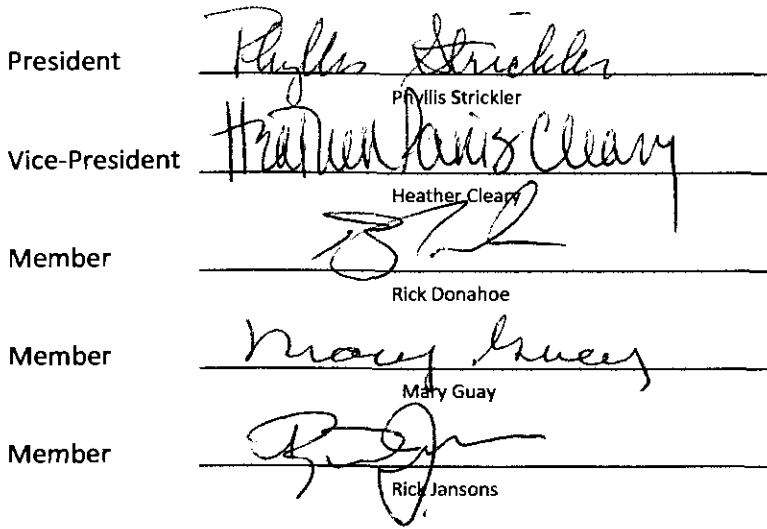 President Phyllis Strickler
Phyllis Strickler
Vice-President Heather Davis Cleary
Heather Cleary
Member
Rick Donahoe
Member Mary Guay
Mary Guay
Member
Rick Jansons